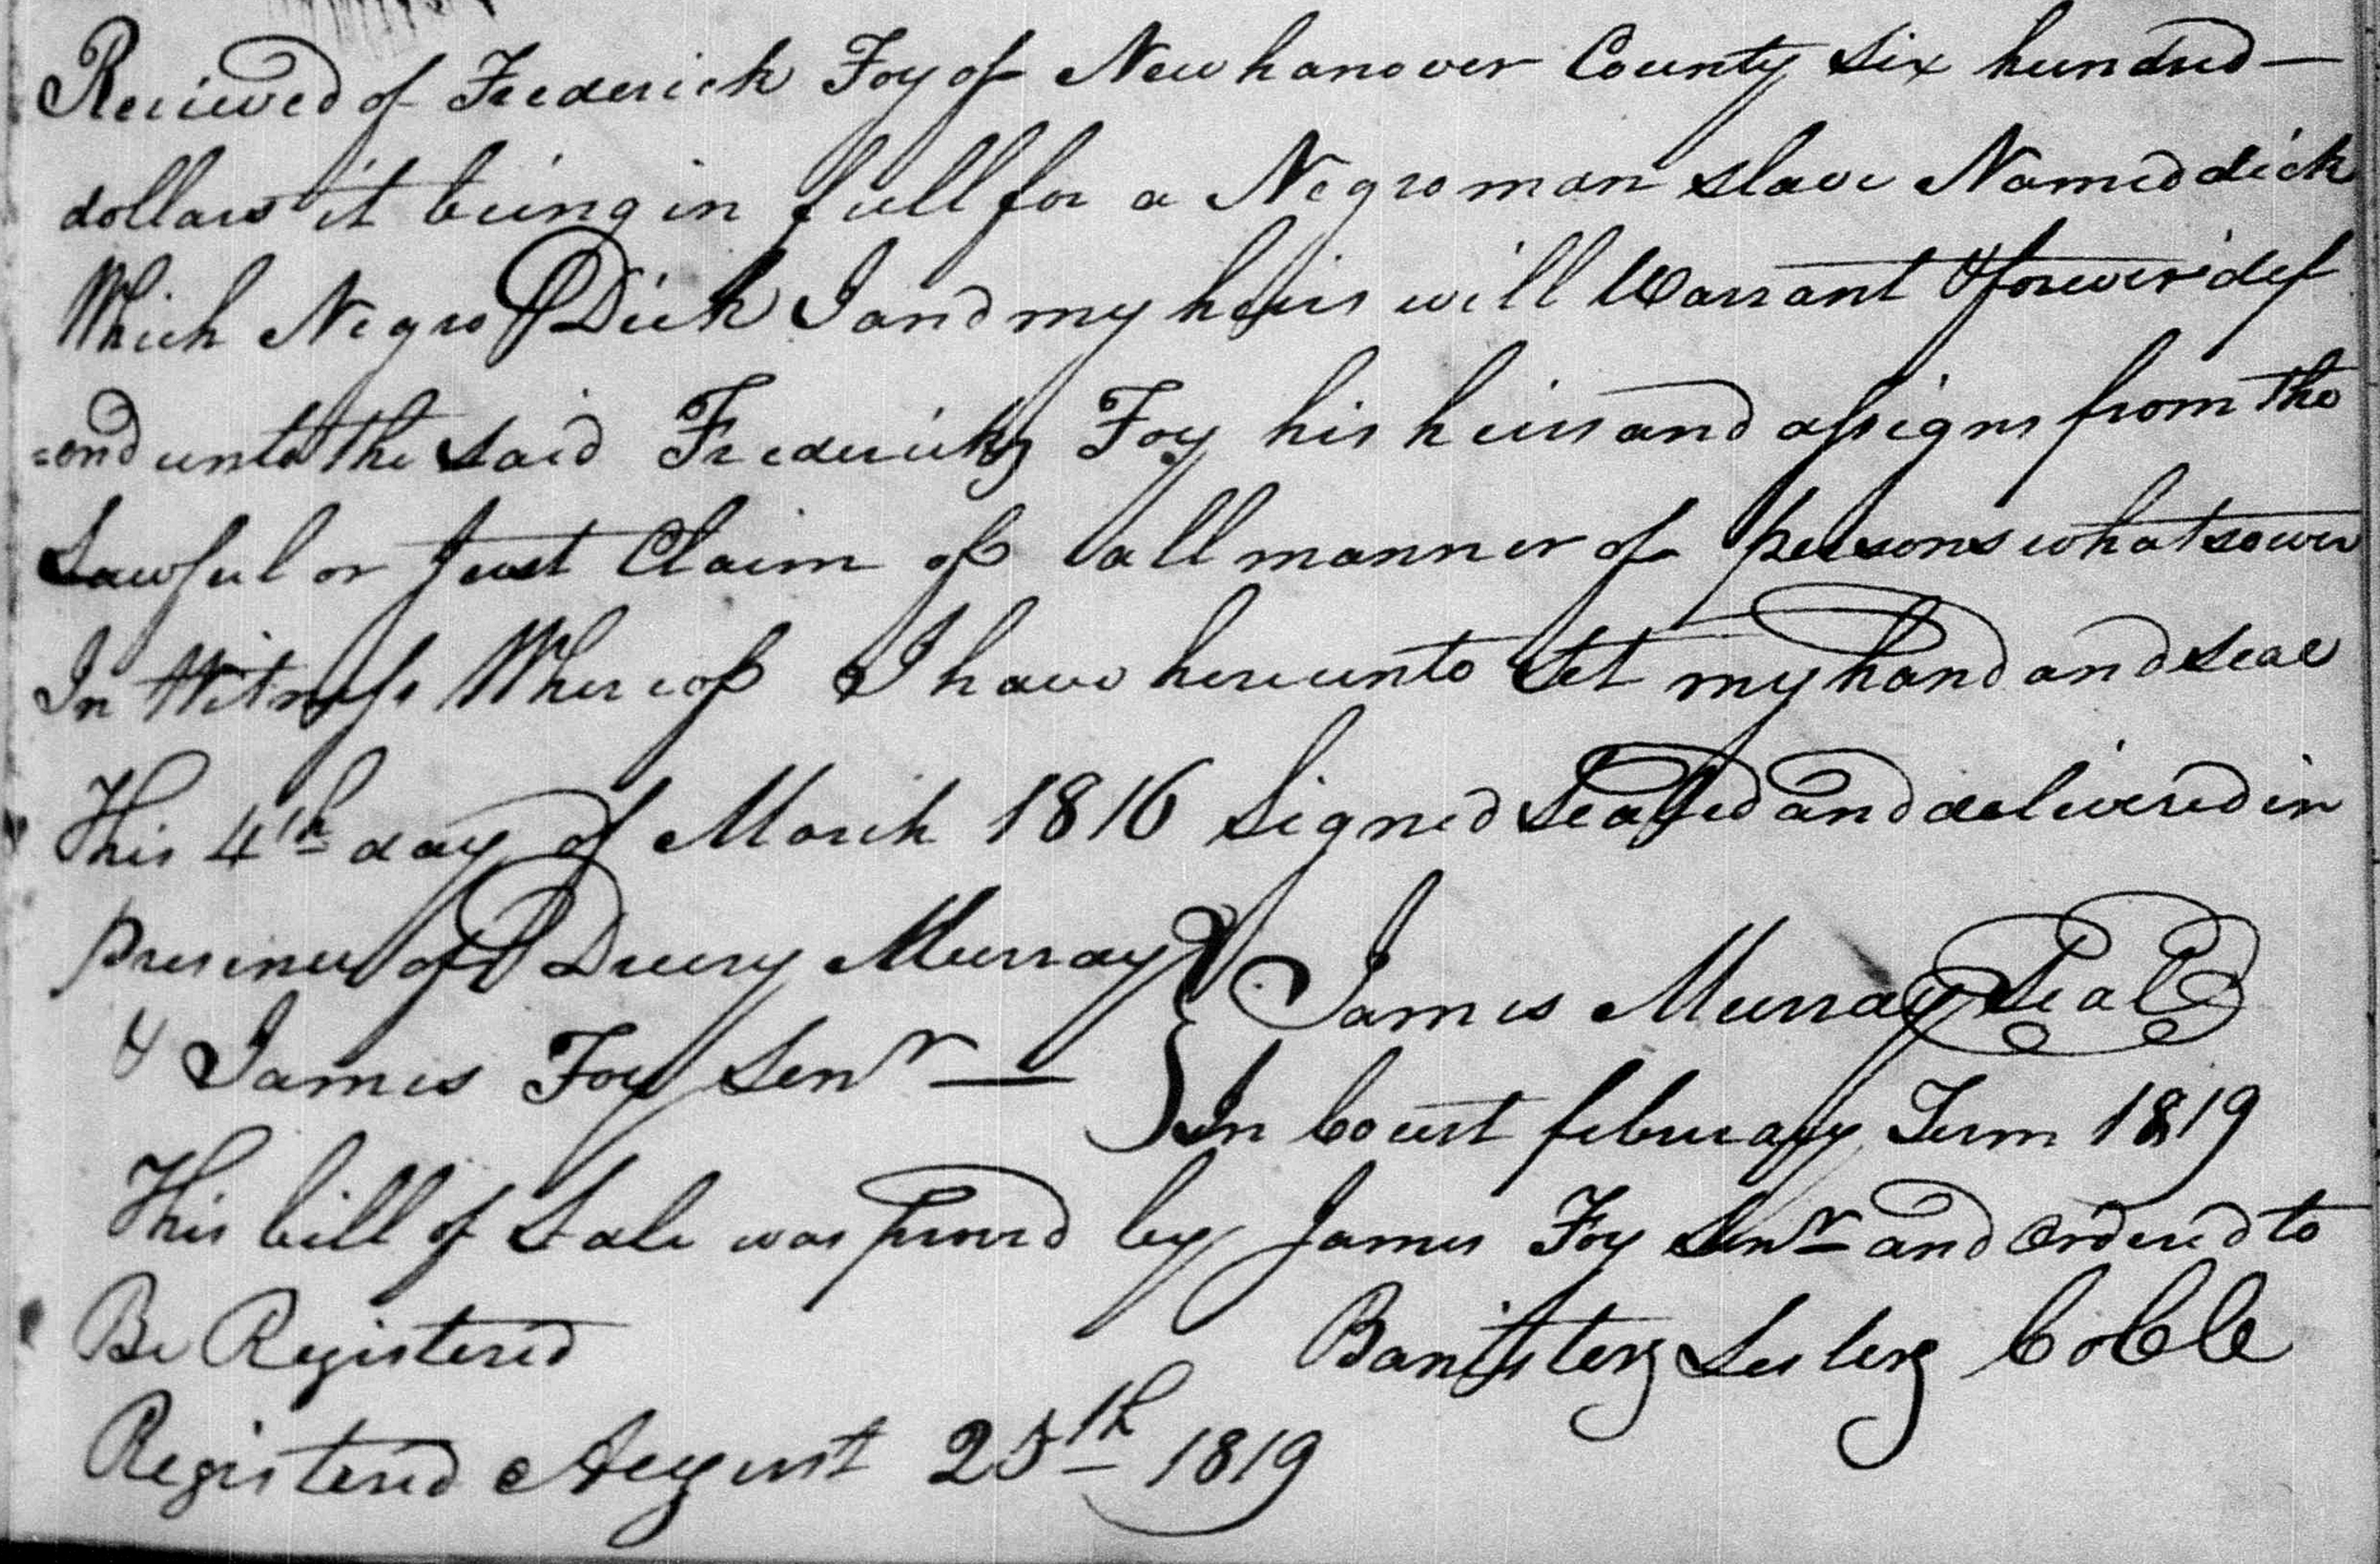 Recieved of Frederick Foy of Newhanover County six hundred —
dollars it being in full for a Negro man slave Named dick
Which Negro Dick I and my heirs will Warrant & forever def
=end unto the said Frederick Foy his heirs and assigns from the
Lawful or Just Claim of all manner of persons whatsoever
In Witness Whereof I have hereunto Set my hand and seal
This 4th day of March 1816 Signed Sealed and delivered in
presence of Drury Murray } James Murray Seal
& James Foy Senr —
In Court february Term 1819
This bill of Sale was proved by James Foy Senr and Ordered to
Be Registered
Banister Lester CoClk
Registered August 25th 1819